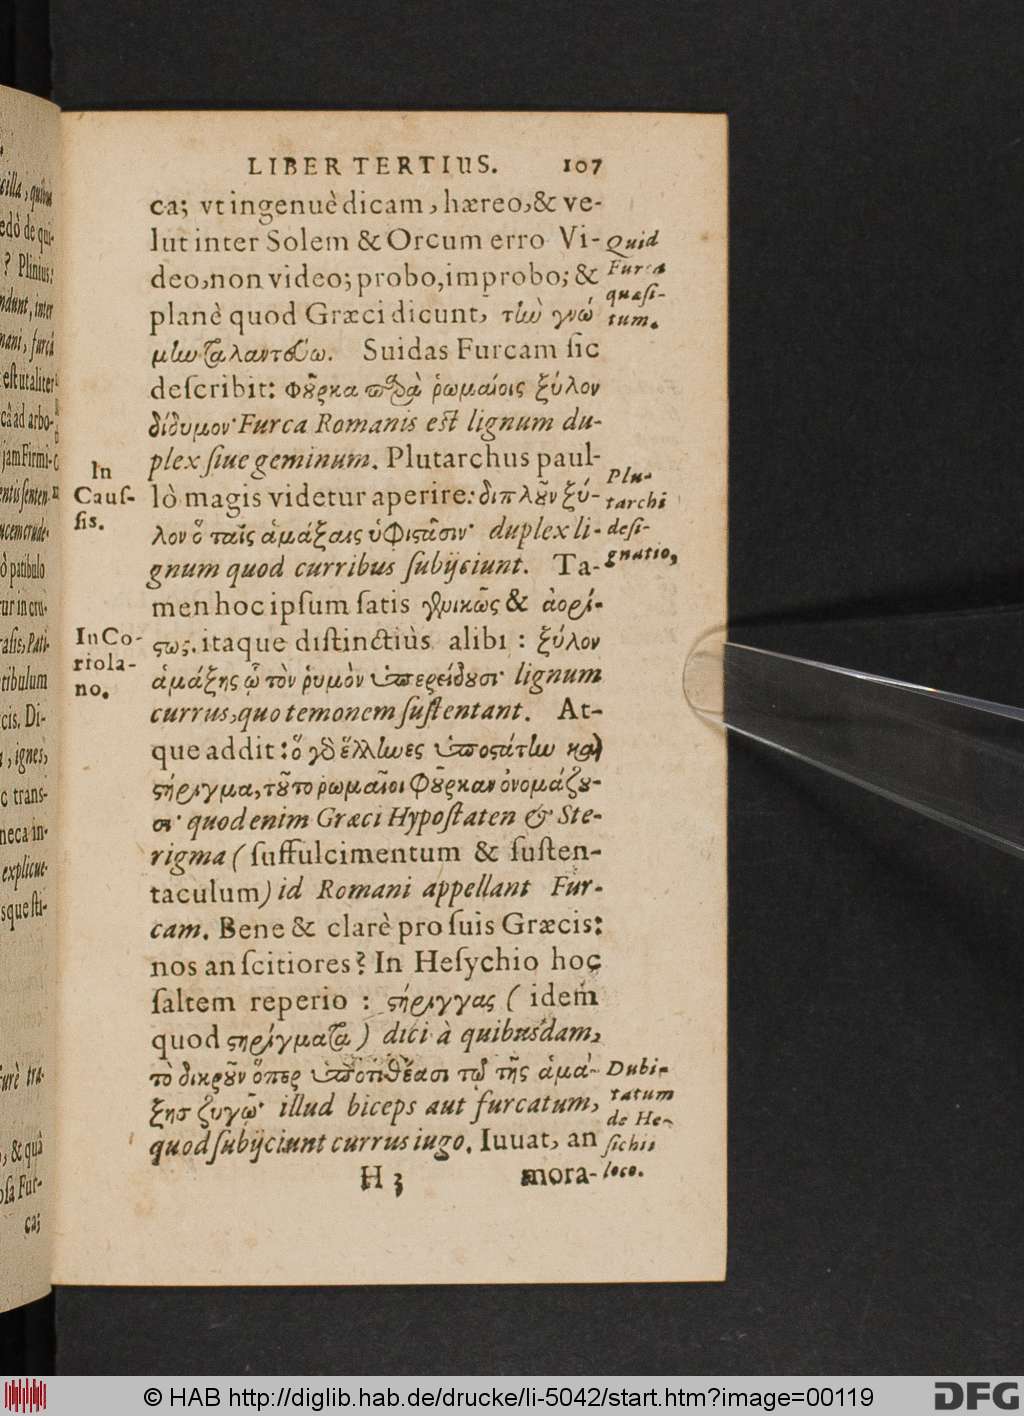 LIBER TERTIUS. 107
ca; vt ingenuè dicam, hæreo, & ve-
lut inter Solem & Orcum erro Vi-
deo, non video; probo, improbo; &
planè quod Græci dicunt, τὼ γνώ
μὼ ταλαντεύω. Suidas Furcam ſic
deſcribit: φοῦρκα παρὰ ῥωμαίοις ξύλον
δίδυμον· Furca Romanis eſt lignum du-
plex ſiue geminum. Plutarchus paul-
lò magis videtur aperire: διπλοῦν ξύ-
λον ὃ ταῖς ἁμάξαις ὑφιςᾶσιν· duplex li-
gnum quod curribus ſubijciunt. Ta-
men hoc ipſum ſatis γενικῶς & ἀορί-
ςως. itaque diſtinctiùs alibi : ξύλον
ἁμάξης ᾧ τὸν ῥυμὸν ὑπερείδουσι· lignum
currus, quo temonem ſuſtentant. At-
que addit: ὃ γὸ ἕλλωες ὑποςάτὼ καὶ
ςήριγμα, τοῦτο ρωμαῖοι φοῦρκαν ὀνομάζου-
σι· quod enim Græci Hypoſtaten & Ste-
rigma (ſuffulcimentum & ſuſten-
taculum) id Romani appellant Fur-
cam. Bene & clarè pro ſuis Græcis:
nos an ſcitiores? In Heſychio hoc
ſaltem reperio : ςήριγγας (idem
quod ςηρίγματα) dici à quibusdam,
τὸ δικροῦν ὅπερ ὑποτιθέασι τῷ τῆς ἁμά-
ξης ζυγῷ· illud biceps aut furcatum,
quod ſubijciunt currus iugo. Iuuat, an
H 3 mora-
Quid
Furca
quæſi-
tum.
In
Cauſ-
ſis.
Plu-
tarchi
deſi-
gnatio,
In Co-
riola-
no.
Dubi-
tatum
de He-
ſichii
loco.
? Plinius:
cis. Di-
, ignes,
c trans-
neca in-
explicue-
sque ſti-
ca;
© HAB http://diglib.hab.de/drucke/li-5042/start.htm?image=00119
DFG